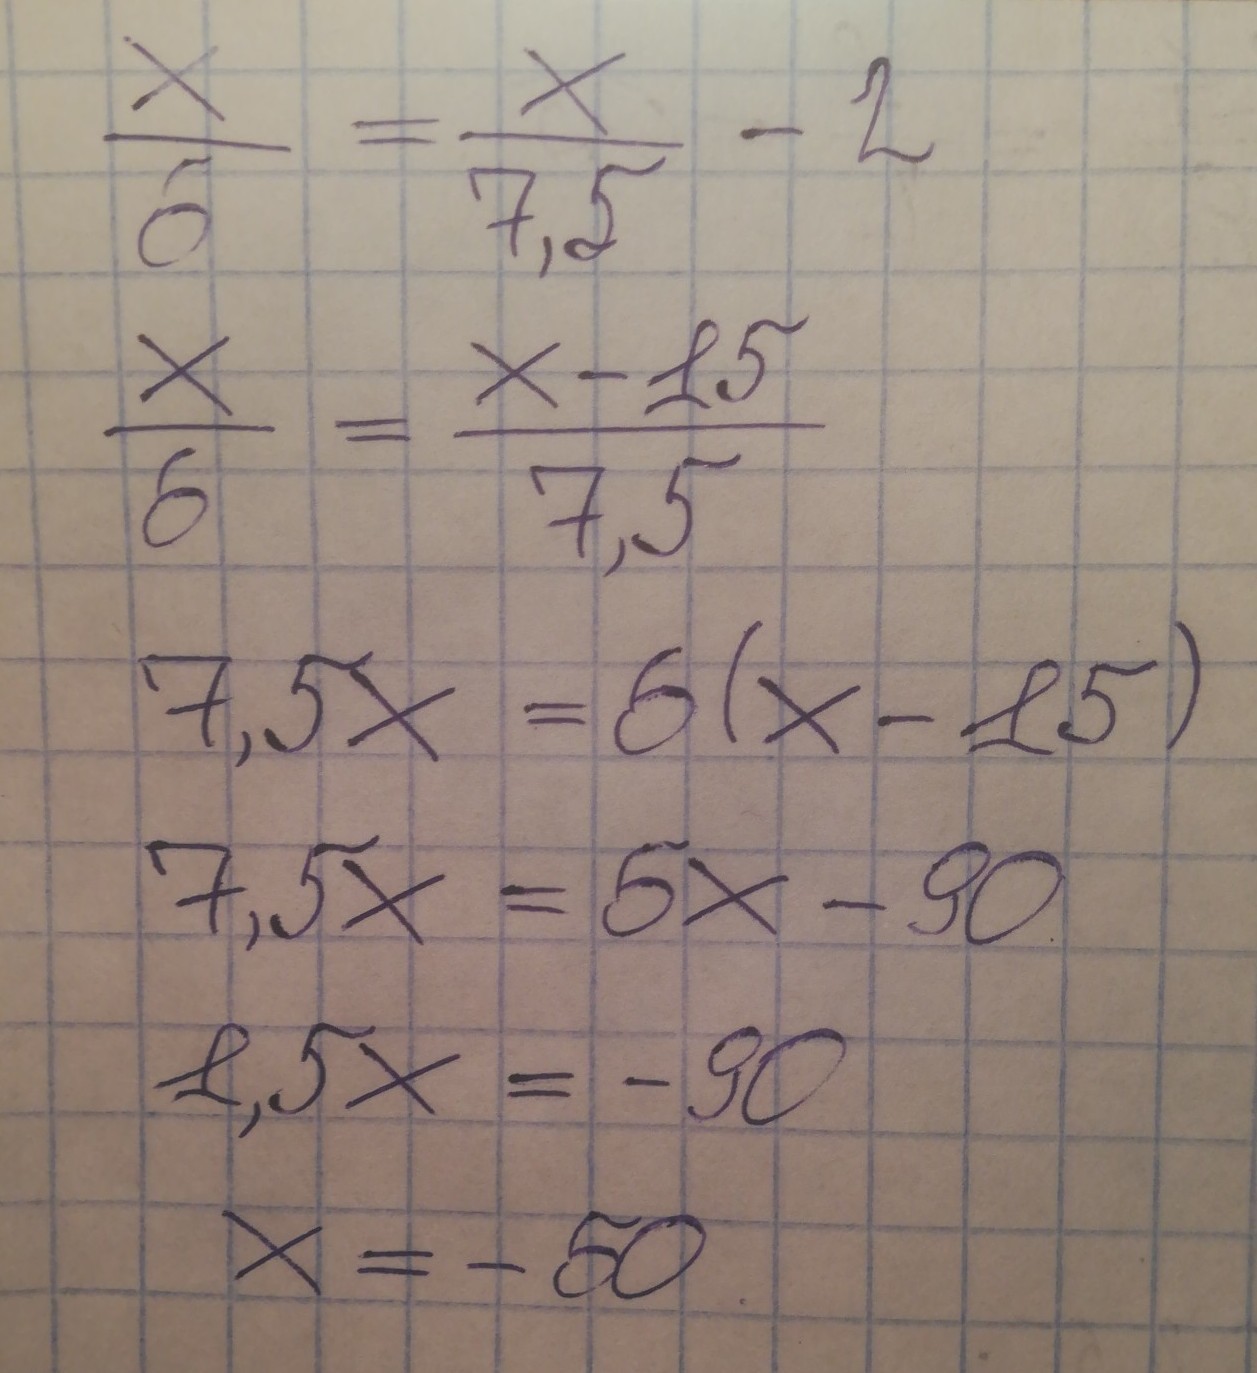 x/6 = x/7,5 - 2
x/6 = x-15/7,5
7,5x = 6(x-15)
7,5x = 6x - 90
1,5x = -90
x = -60